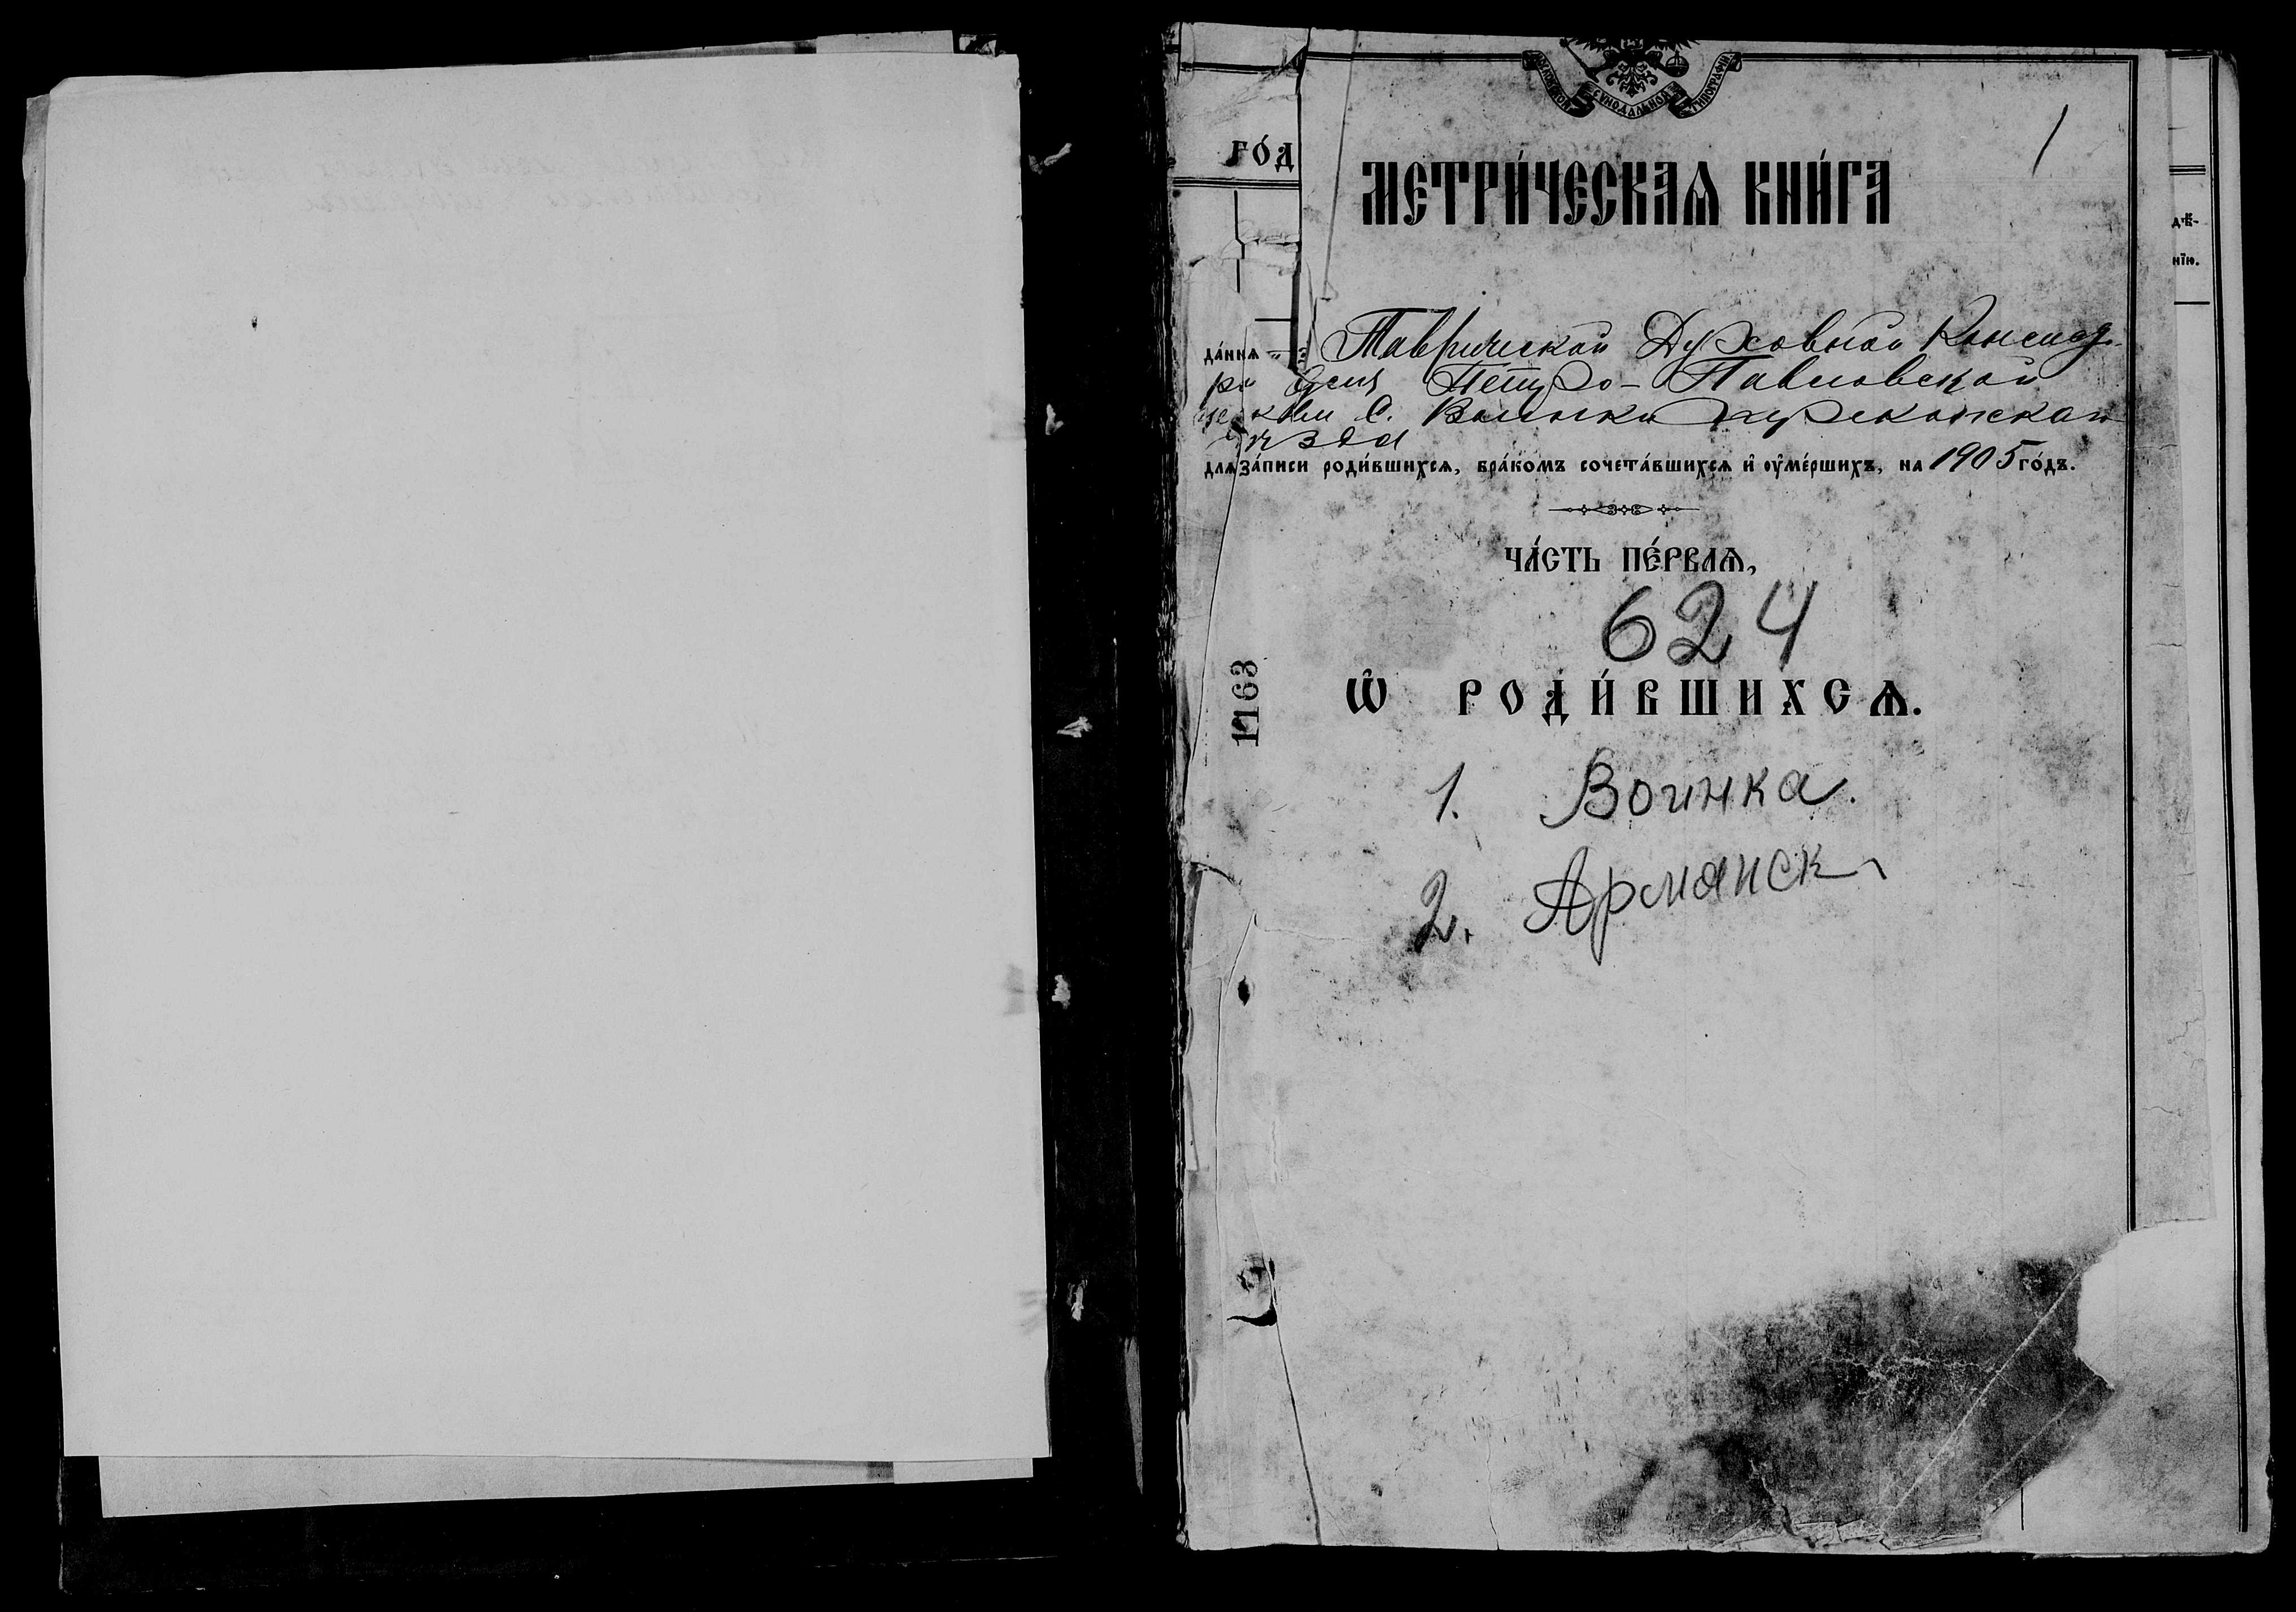 Московской Сѵнодальной Типографїи
1
ГО́Д
МЕТРИ́ЧЕСКАѦ КНИ́ГА
дѣ-
нїю.
да́ннаѧ Таврической Духовной Консисто-
рїи для Петро-Павловской
церкви С. Воинки Перекопскаго
уѣзда
для за́писи роди́вшихсѧ, бра́комъ сочета́вшихсѧ и҆ ᲂу҆ме́ршихъ, на 1905 го́дъ.
ЧА́СТЬ ПЕ́РВАѦ,
624
Ѡ҆ РОДИ́ВШИХСѦ.
1163
1. Воинка.
2. Армянск